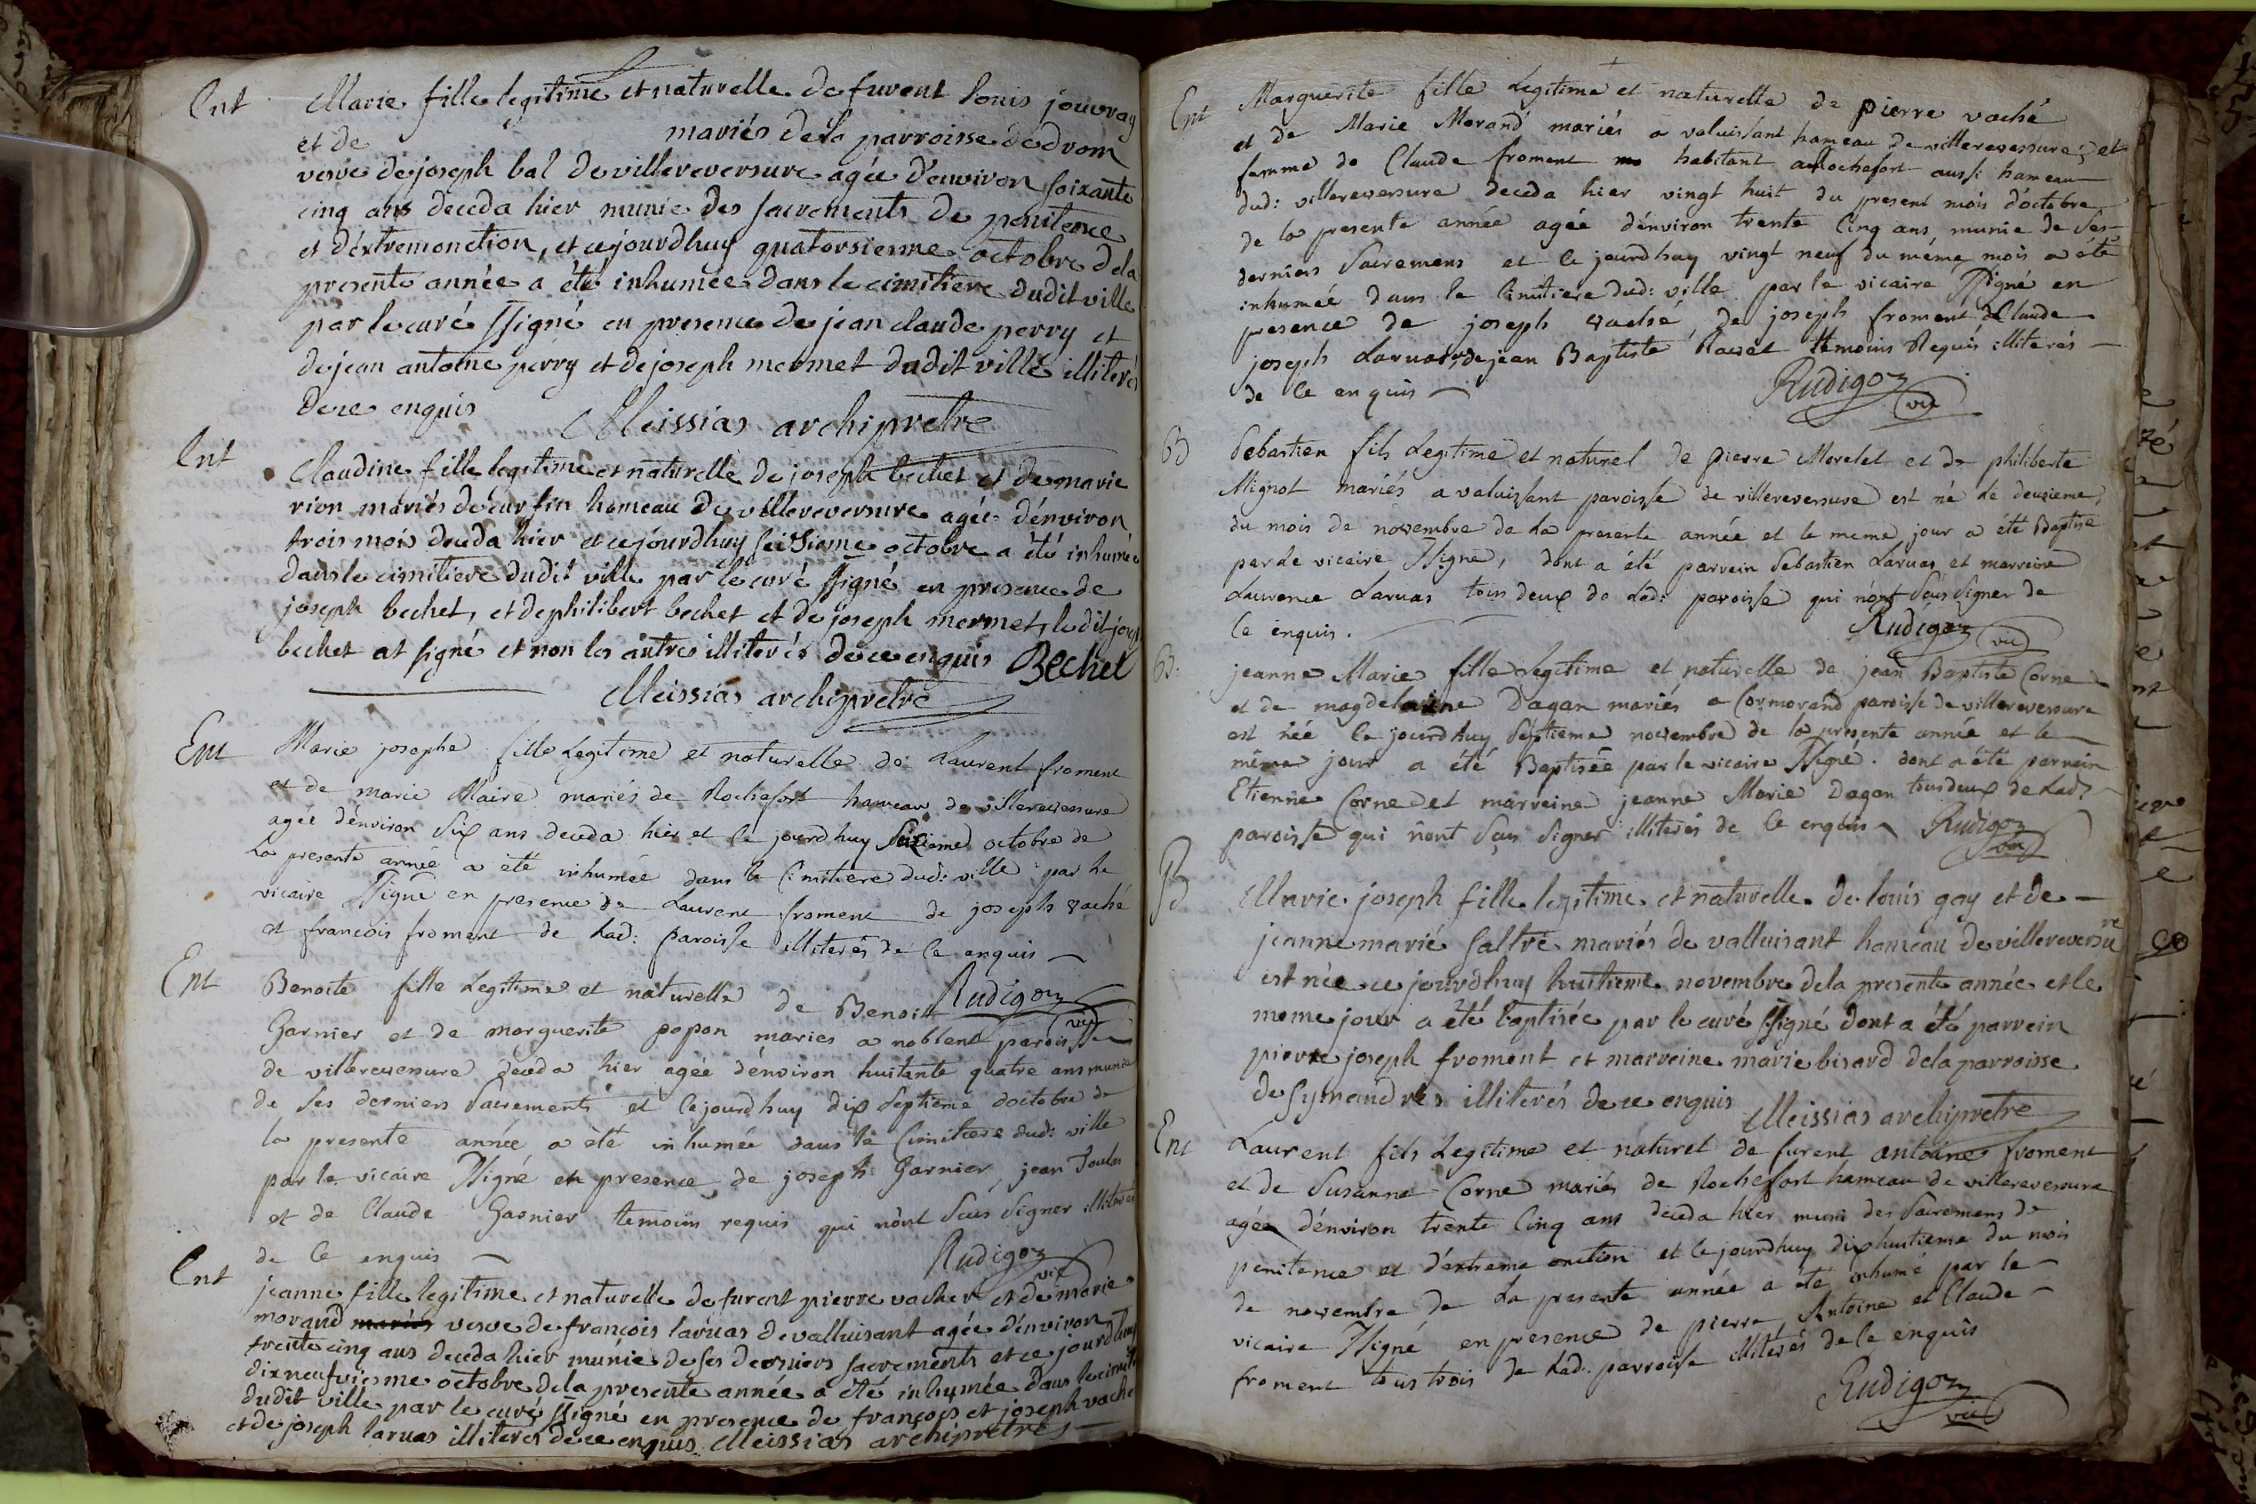 Ent Marie fille legitime et naturelle de furent louis jouvray
et de mariés de la parroisse de drom
veuve de joseph bal de villereversure agée d'environ soixante
cinq ans deceda hier munie des sacrements de penitence
et d'extremonction, et cejourdhuy quatorsieme octobre dela
presente année a été inhumée dans le cimitiere dudit ville
par le curé ssigné en presence de jean claude perry et
de jean antoine perry et de joseph mermet dudit ville illiterés
de ce enquis Meissias archipretre
Ent Claudine fille legitime et naturelle de joseph bechet et de marie
rion mariés de curfin hameau de villereversure agée d'environ
trois mois deceda hier et cejourdhuy seisieme octobre a été inhumée
dans le cimitiere dudit ville par le curé ssigné en presence de
joseph bechet, et de philibert bechet et de joseph mermet, ledit jos
bechet at signé et non les autres illiterés de ce enquis Bechet
Meissias archipretre
Ent Marie josephe fille Legitime et naturelle de Laurent froment
et de marie Maire mariés de Rochefort hameau de villereversure
agée d'environ Six ans deceda hier et ce jourdhuy Seizieme octobre de
La presente année a été inhumée dans le Cimitiere dud: ville par le
vicaire ssigné en presence de Laurent froment de joseph vaché
et francois froment de Lad: paroisse illiterés de ce enquis
Rudigoz vic
Ent Benoite fille Legitime et naturelle de Benoit
Garnier et de marguerite popon mariés a noblent paroisse
de villereversure deceda hier agée d'environ huitante quatre ans munie
de Ses derniers Sacrements et Cejourdhuy dix Septieme d'octobre de
la presente année a été inhumée dans le Cimitiere dud: ville
par le vicaire ssigné en presence de joseph Garnier, jean
et de Claude Garnier temoins requis qui n'ont Scus Signer illiterés
de Ce enquis Rudigoz vic
Ent jeanne fille legitime et naturelle de furent pierre vacher et de marie
morand mariés veuve de françois laruas de valluisant agée d'environ
trente cinq ans deceda hier munie de ses derniers sacrements et ce jourdhuy
dixneufviesme octobre dela presente année a été inhumée dans le cimit
dudit ville par le curé ssigné en presence de françois et joseph vache
et de joseph laruas illiterés de ce enquis Meissias archipretre
Ent Marguerite fille Legitime et naturelle de pierre vaché
et de Marie Morand mariés a valuissant hameau de villereversure, et
famme de Claude froment habitant a Rochefort aussi hameau
dud: villereversure deceda hier vingt huit du present mois d'octobre
de la presente année agée d'environ trente Cinq ans munie de Ses
derniers Sacremens et Ce jourdhuy vingt neuf du même mois a été
inhumée dans le Cimitiere dud: ville par le vicaire ssigné en
presence de joseph vaché, de joseph froment de Claude
joseph Laruas, de jean Baptiste Ravet temoins Requis illiterés
de Ce enquis Rudigoz vic
B Sebastien fils Legitime et naturel de pierre Morelet et de philiberte
Mignot mariés a valuissant paroisse de villereversure est né le deuxieme
du mois de novembre de La presente année et le meme jour a été Baptisé
par le vicaire ssigné, dont a été parrein Sebastien Laruas et marreine
Laurence Laruas tous deux de Lad: paroisse qui n'ont Scus Signer de
Ce enquis. Rudigoz vic
B. jeanne Marie fille Legitime et naturelle de jean Baptiste Corne
et de magdelaine Dagan mariés a Cormorand paroisse de villereversure
est née Ce jourdhuy Septieme novembre de la presente année et le
même jour a été Baptisée par le vicaire ssigné. dont a été parrein
Etienne Corne et marreine jeanne Marie Dagan tous deux de Lad:
paroisse qui n'ont Scus Signer illiterés de Ce enquis Rudigoz vic
B Marie joseph fille legitime et naturelle de louis gay et de
jeanne marie saltre mariés de valluisant hameau de villereversure
est née ce jourdhuy huitieme novembre dela presente année et le
meme jour a été baptisée par le curé ssigné dont a été parrein
pierre joseph froment et marreine marie bisard dela parroisse
de symandres illiterés de ce enquis Meissias archipretre
Ent Laurent fils Legitime et naturel de furent antoine froment
et de Susanne Corne mariés de Rochefort hameau de villereversure
agée d'environ trente Cinq ans deceda hier muni des Sacremens de
penitence et d'extreme onction et Cejourdhuy dixhuitieme du mois
de novembre de La presente année a été inhumé par le
vicaire ssigné en presence de pierre Antoine et Claude
froment tous trois de Lad: parroisse illiterés de Ce enquis
Rudigoz vic